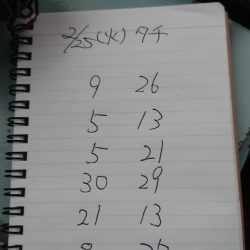 2/25(火) タチ
9 26
5 13
5 21
30 29
21 13